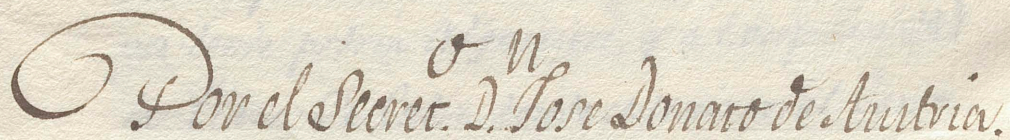 Por el Secret.º D.ⁿ Jose Donato de Austria.